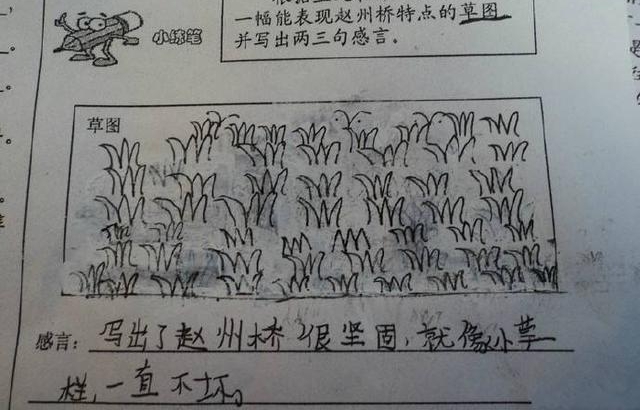 小练笔
一幅能表现赵州桥特点的草图
并写出两三句感言。
草图
感言：写出了赵州桥很坚固，就像小草一
样，一直不坏。